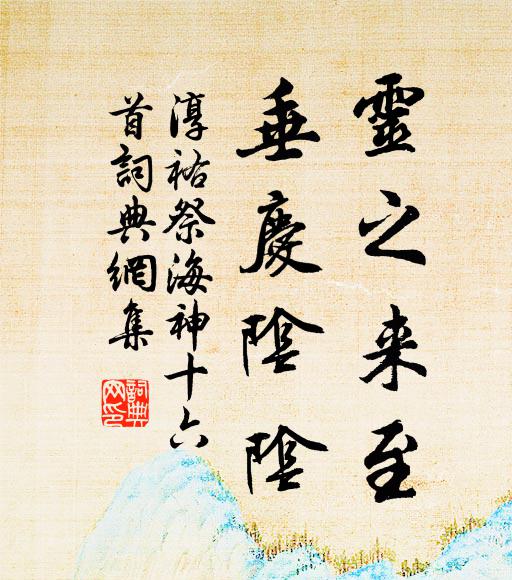 靈之来至
垂慶陰陰
淳祐祭海神十六
首詞典網集
詞典
网印